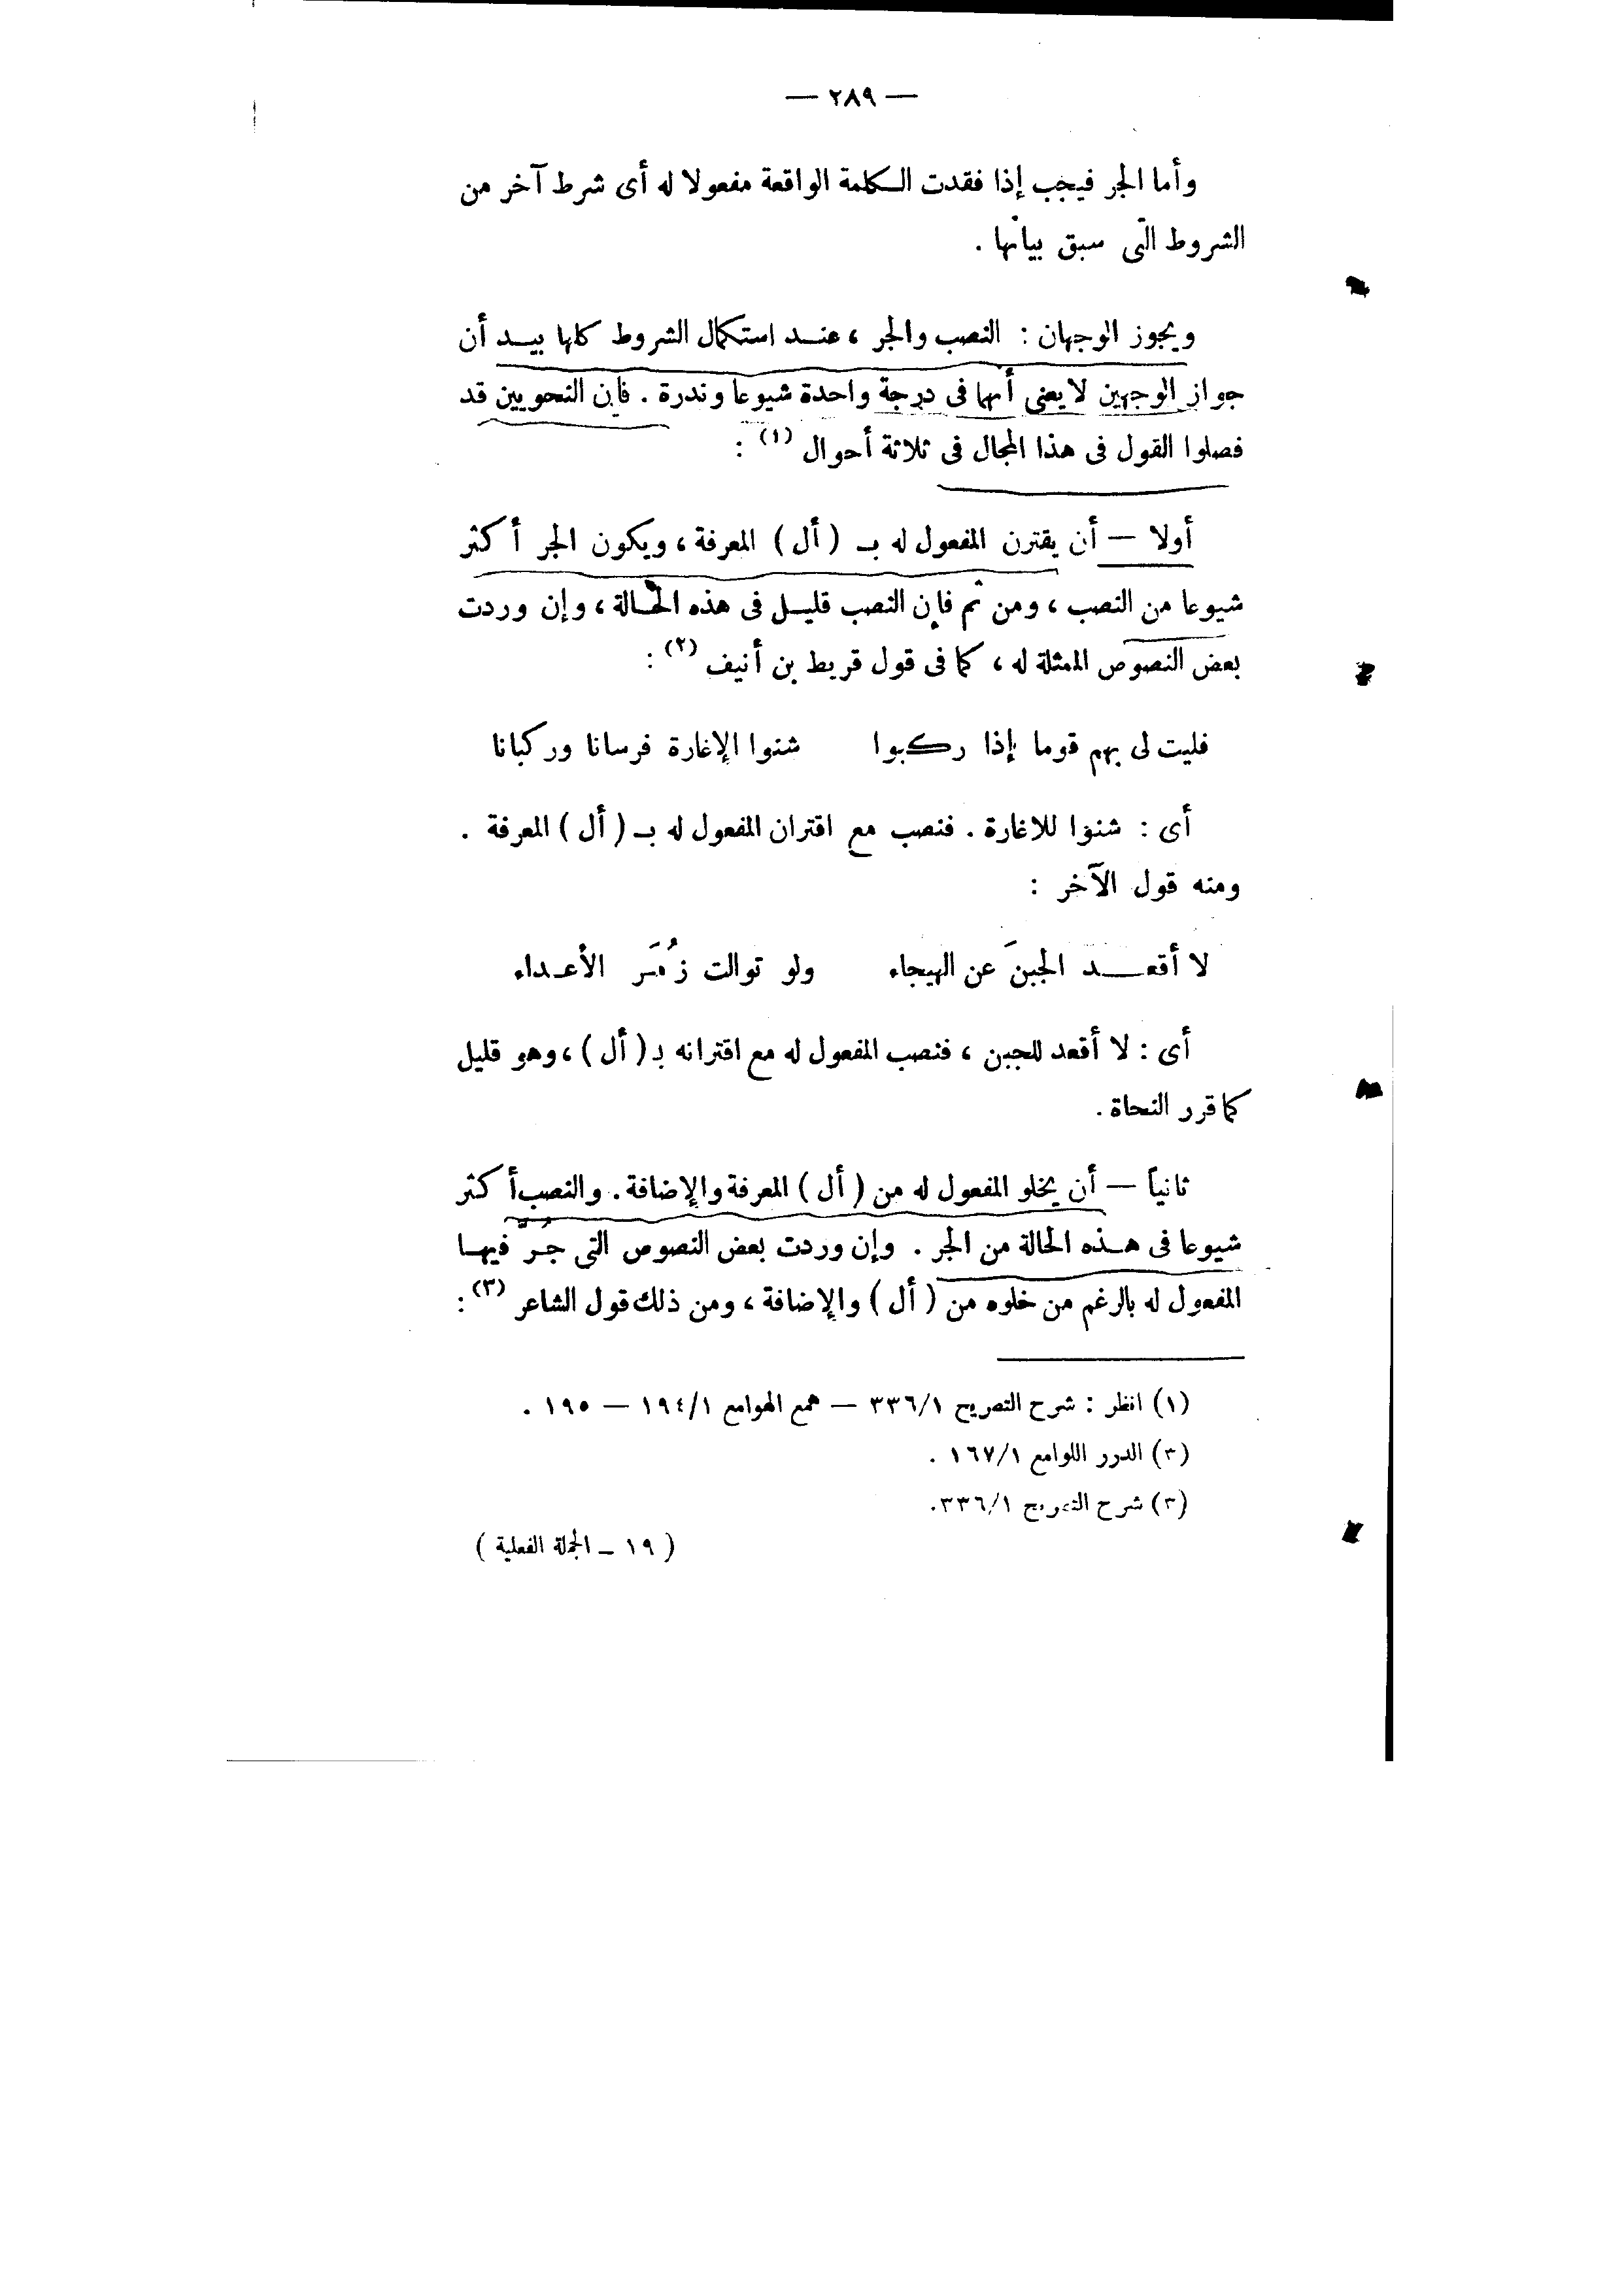 — ٢٨٩ —
وأما الجر فيجب إذا فقدت الكلمة الواقعة مفعولا له أى شرط آخر من
الشروط التى سبق بيانها .
ويجوز الوجهان : النصب والجر ، عند استكمال الشروط كلها بيد أن
جواز الوجهين لا يعنى أنهما فى درجة واحدة شيوعا وندرة . فإن النحويين قد
فصلوا القول فى هذا المجال فى ثلاثة أحوال (١) :
أولا — أن يقترن المفعول له بـ ( أل ) المعرفة ، ويكون الجر أكثر
شيوعا من النصب ، ومن ثم فإن النصب قليل فى هذه الحالة ، وإن وردت
بعض النصوص الممثلة له ، كما فى قول قريط بن أنيف (٢) :
فليت لى بهم قوما إذا ركبوا شنوا الإغارة فرسانا وركبانا
أى : شنوا للاغارة . فنصب مع اقتران المفعول له بـ ( أل ) المعرفة .
ومنه قول الآخر :
لا أقعد الجبنَ عن الهيجاء ولو توالت زُمَر الأعداء
أى : لا أقعد للجبن ، فنصب المفعول له مع اقترانه بـ ( أل ) ، وهو قليل
كما قرر النحاة .
ثانياً — أن يخلو المفعول له من ( أل ) المعرفة والإضافة . والنصب أكثر
شيوعا فى هذه الحالة من الجر . وإن وردت بعض النصوص التى جُرَّ فيها
المفعول له بالرغم من خلوه من ( أل ) والإضافة ، ومن ذلك قول الشاعر (٣) :
(١) انظر : شرح التصريح ٣٣٦/١ — همع الهوامع ١٩٤/١ — ١٩٥ .
(٢) الدرر اللوامع ١٦٧/١ .
(٣) شرح التصريح ٣٣٦/١.
( ١٩ ـ الجملة الفعلية )